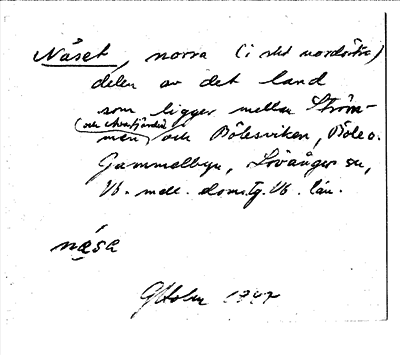 Näset, norra (i det nordöstra)
delen av det land
som ligger mellan Ström-
(och Avafjärden)
men och Bölesviken, Böle o.
Gammelbyn, Lövånger sn,
Vb. mell. doms.tg. Vb. län.
nǟsa
GHolm 1947